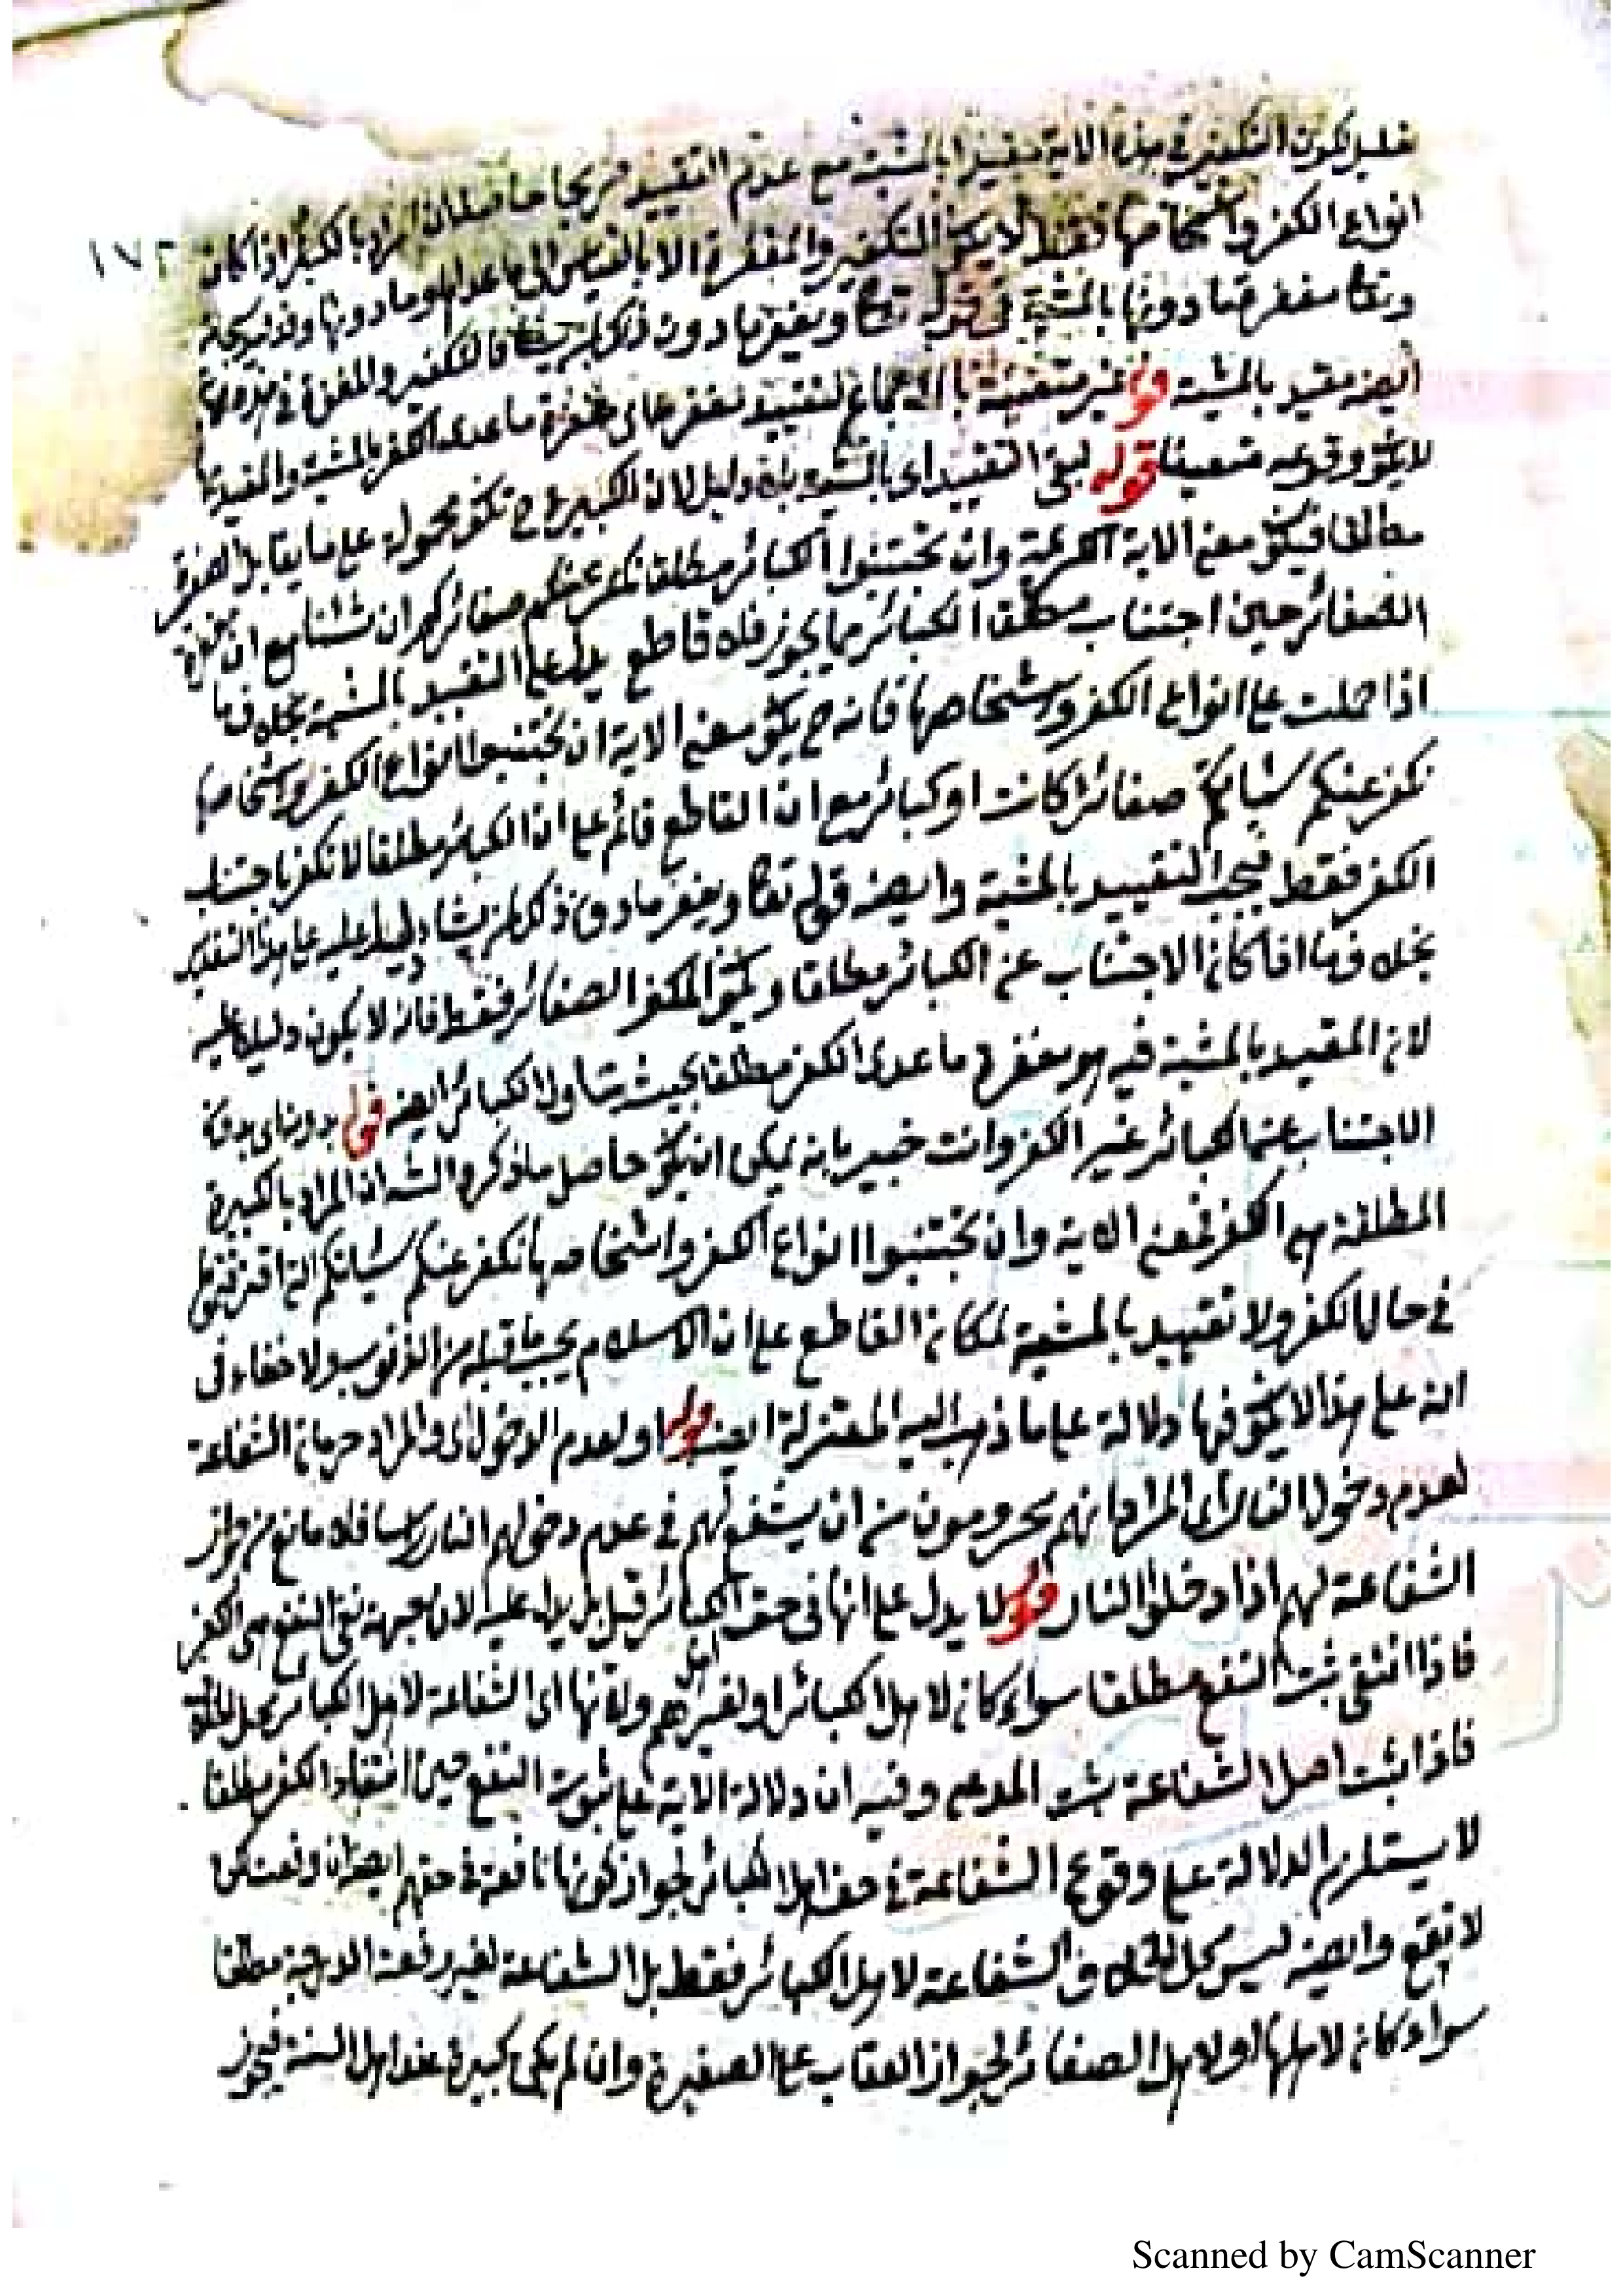 فلم يكون التكفير في هذه الآية مقيدا بالمشية مع عدم التقييد صريحا حاصله ان المراد بالكبائر اذا كان
١٧٢
انواع الكفر واشخاصها فقط لا يكو التكفير والمغفرة الا بالقياس الى ما عداها وما دونها
وتعا مغفرة ما دونها بالمشية في قوله تعا ويغفر ما دون ذلك لمن يشا فالتكفير والمغفرة في هذه
ايضه مقيد بالمشية قوله غير متعينة بالاجماع لتقييد نغفر اى مغفرة ما عدى الكفر بالمشية والمقيد بها
لا يكو وقوعه متعينا قوله لبقى التقييد اى بالمشية بلا دليل لان الكبيرة ح تكو محمولة على ما يقابل الصغيرة
مطلقا فيكو معنى الاية الكريمة وان تجتنبوا الكبائر مطلقا نكفر عنكم صغائركم ان شئنا مع ان مغفرة
الصغائر حين اجتناب مطلق الكبائر مما يجوز فلا قاطع يدل على التقييد بالمشية بخلاف ما
اذا حملت على انواع الكفر واشخاصها فانه ح يكو معنى الاية ان تجتنبوا انواع الكفر واشخاصها
نكفر عنكم سياتكم صغائرا كانت او كبائر مع ان القاطع قائم على ان الكبائر مطلقا لا تكفر باجتناب
الكفر فقط فيجب التقييد بالمشية وايضه قوله تعا ويغفر ما دون ذلك لمن يشاء دليل عليه على هذا التقدير
بخلاف ما اذا كان الاجتناب عن الكبائر مطلقا ويكو المكفر الصغائر فقط فانه لا يكون دليلا عليه
لان المقيد بالمشية فيه هو مغفرة ما عدى الكفر مطلقا بحيث يتناول الكبائر ايضه قوله بدونه اى بدون
الاجتناب عنها كبائر غير الكفر وانت خبير بانه يمكن ان يكو حاصل ما ذكره الشه ان المراد بالكبيرة
المطلقة هى الكفر فمعنى الاية وان تجتنبوا انواع الكفر واشخاصها نكفر عنكم سياتكم التى اقترفتم
في حال الكفر ولا تقييد بالمشية لمكان القاطع على ان الاسلام يجب ما قبله من الذنوب ولا خفاء فى
انه على هذا لا يكو فيها دلالة على ما ذهب اليه المعتزلة ايضه قوله او لعدم الدخول اى والمراد حرمان الشفاعة
لعدم دخول النار اى المراد انهم محرومون من ان يشفع لهم في عدم دخولهم النار راسا فلا مانع من جواز
الشفاعة لهم اذا دخلوا النار قوله لا يدل على انها فى حق الكبائر قيل بل يدل عليه لان جهة نفى النفع هى الكفر
فاذا انتفى ثبت النفع مطلقا سواء كان لاهل الكبائر او لغيرهم ولانها اى الشفاعة لاهل الكبائر محل الخلاف
فاذا ثبت اصل الشفاعة ثبت المدعى وفيه ان دلالة الاية على ثبوت النفع حين انتفاء الكفر مطلقا
لا يستلزم الدلالة على وقوع الشفاعة في حق اهل الكبائر لجواز كونها نافعة في حقهم ايضه ان وقعت لكن
لا تقع وايضه ليس محل الخلاف الشفاعة لاهل الكبائر فقط بل الشفاعة لغير رفعة الدرجة مطلقا
سواء كان لاهلها او لاهل الصغائر لجواز العقاب على الصغيرة وان لم يكن كبيرة عند اهل السنة فيجوز
Scanned by CamScanner